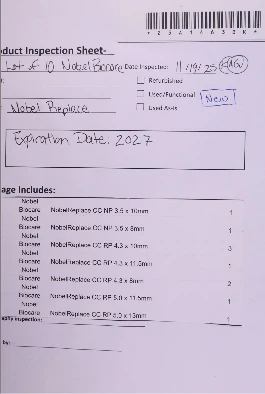 duct Inspection Sheet-
Lot of 10 Nobel Biocare Date Inspected: 11/19/25
Refurbished
Used/Functional New
Nobel Replace
Used As-is
Expiration Date: 2027
age Includes:
Nobel
Biocare NobelReplace CC NP 3.5 x 10mm 1
Nobel
Biocare NobelReplace CC NP 3.5 x 8mm 1
Nobel
Biocare NobelReplace CC RP 4.3 x 10mm 3
Nobel
Biocare NobelReplace CC RP 4.3 x 11.5mm 1
Nobel
Biocare NobelReplace CC RP 4.3 x 8mm 2
Nobel
Biocare NobelReplace CC RP 5.0 x 11.5mm 1
Nobel
Biocare NobelReplace CC RP 5.0 x 13mm 1
Inspection:
by: